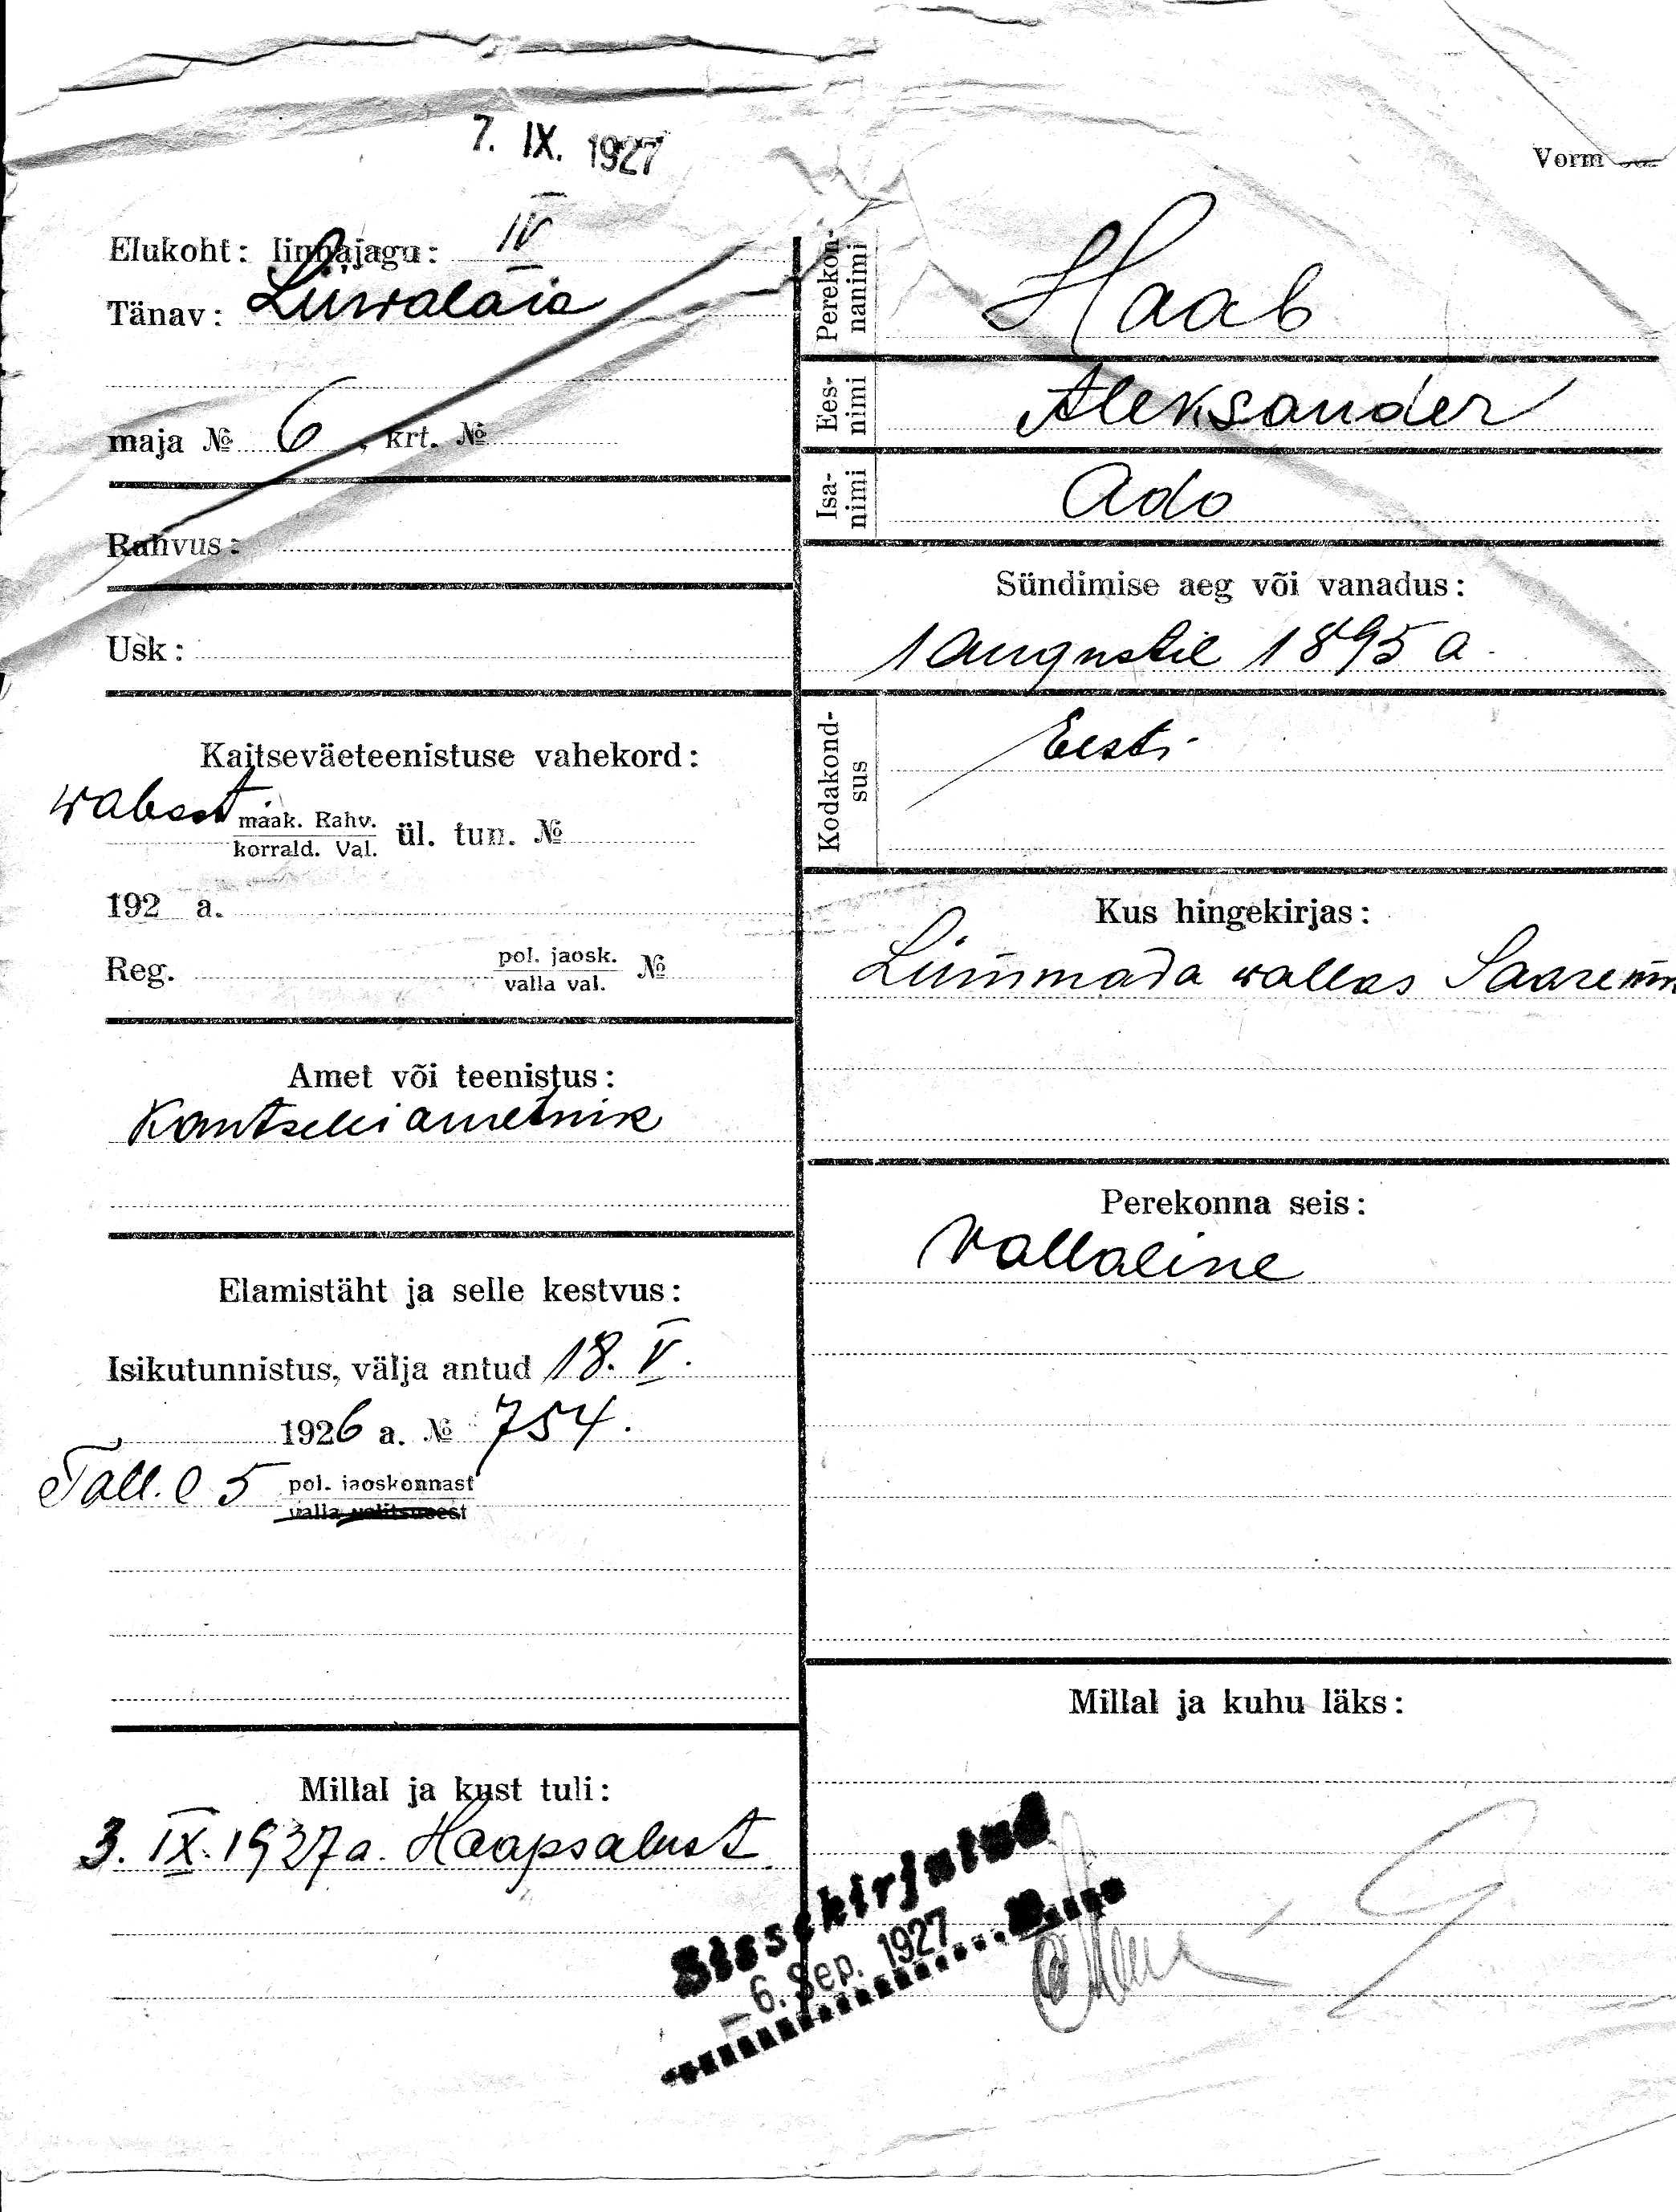 7. IX. 1927
Vorm
Elukoht: linnajagu: IV
Tänav: Liiwalaia
maja № 6, krt. №
Rahvus:
Usk:
Kaitseväeteenistuse vahekord:
wabast maak. Rahv. korrald. Val. ül. tun. №
192 a.
Reg. pol. jaosk. valla val. №
Amet või teenistus:
Kantseleiametnik
Elamistäht ja selle kestvus:
Isikutunnistus, välja antud 18. V.
1926 a. № 754.
Tall. 5 pol. jaoskonnast
valla valitsusest
Millal ja kust tuli:
3. IX. 1927 a. Haapsalust.
Perekonnanimi
Haab
Eesnimi
Aleksander
Isanimi
Ado
Sündimise aeg või vanadus:
1 augustil 1895 a.
Kodakondsus
Eesti
Kus hingekirjas:
Lümmada wallas Saarem
Perekonna seis:
Vallaline
Millal ja kuhu läks:
Sissekirjutud
6. Sep. 1927